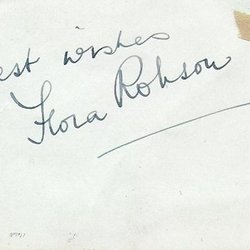 est wishes
Flora Robson